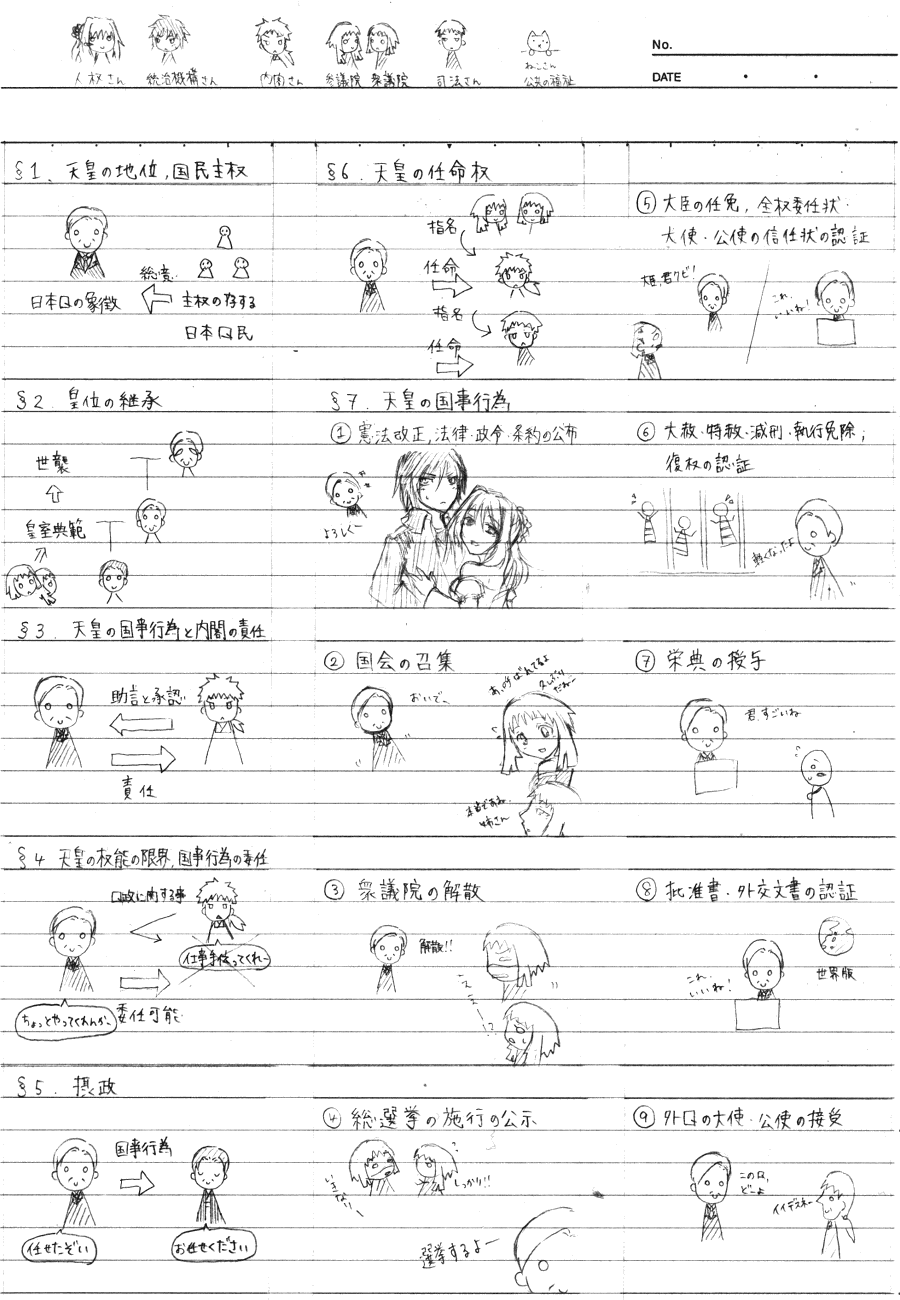 人权さん 統治機構さん 内閣さん 参議院 衆議院 司法さん ねこさん
公共の福祉
No.
DATE
§1. 天皇の地位,国民主权
総意
日本囗の象徴
主权の存する
日本囗民
§2. 皇位の継承
世襲
皇室典範
§3. 天皇の国事行為と内閣の責任
助言と承認
責任
§4 天皇の权能の限界,国事行為の委任
囗政に関する事
仕事手伝ってくれー
ちょっとやってくれんかー
委任可能
§5. 摂政
国事行為
任せたぞい
お任せください
§6. 天皇の任命权
指名
任命
指名
任命
§7. 天皇の国事行為
① 憲法改正,法律・政令・条約の公布
よろしくー
② 国会の召集
おいでー
あ、呼ばれてるよ
久しぶり
だねー
本当であね、
姉さん
③ 衆議院の解散
解散!!
えぇー!?
④ 総選挙の施行の公示
しっかり!!
選挙するよー
⑤ 大臣の任免,全权委任状・
大使・公使の信任状の認証
君クビ!
これ、
いいね!
⑥ 大赦・特赦・減刑・執行免除;
復权の認証
軽くなったよ
⑦ 栄典の授与
君、すごいね
⑧ 批准書・外交文書の認証
これ、
いいね!
世界版
⑨ 外囗の大使・公使の接受
この囗、
どーよ
イイデスネー